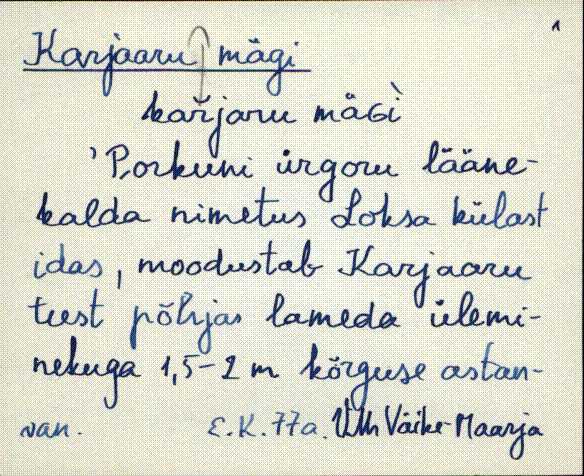 1
Karjaaru mägi
kařjaru mäGì
'Porkuni ürgoru lääne-
kalda nimetus Loksa külast
idas, moodustab Karjaaru
teest põhjas lameda ülemi-
nekuga 1,5-2 m kõrguse astan-
van. E.K. 77a. Väike-Maarja